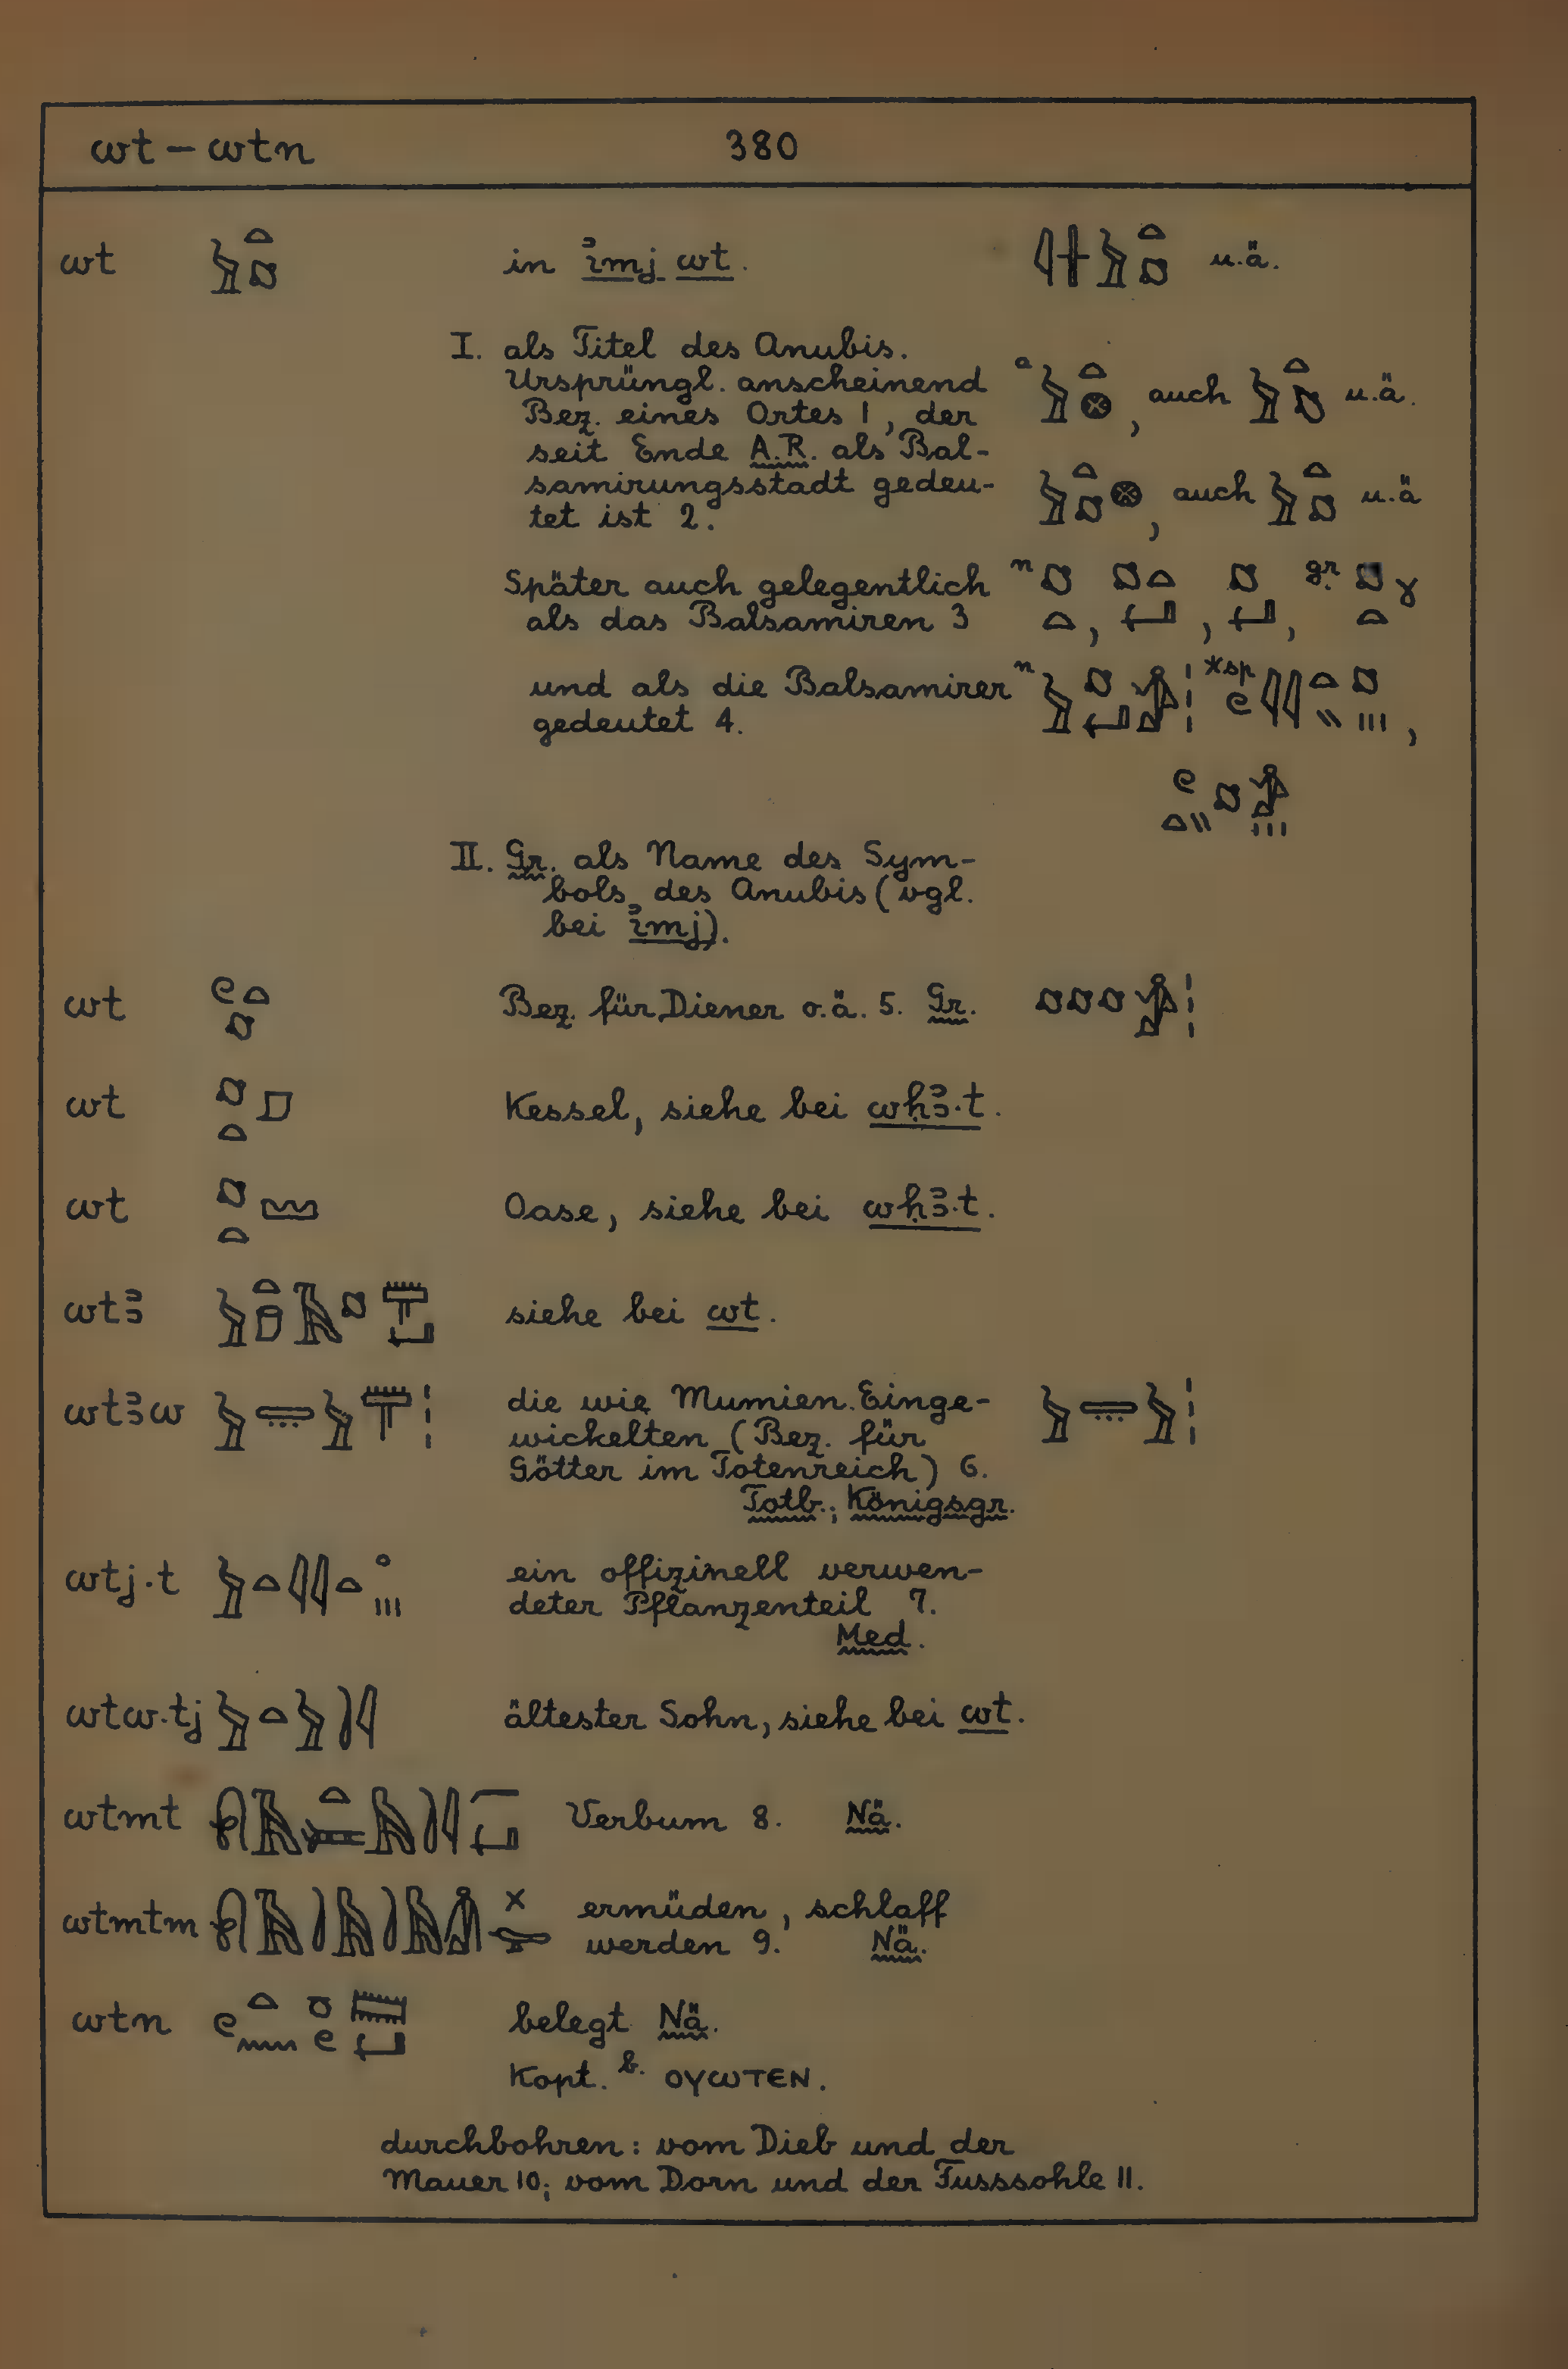 wt – wtn 380
wt in i͗mj wt. u.ä.
I. als Titel des Anubis.
Ursprüngl. anscheinend
Bez. eines Ortes 1, der
a , auch u.ä.
seit Ende A.R. als Bal-
samirungsstadt gedeu-
tet ist 2.
, auch u.ä
Später auch gelegentlich
als das Balsamiren 3
n , , , gr. γ
und als die Balsamirer
gedeutet 4.
n *sp ,
II. Gr. als Name des Sym-
bols des Anubis (vgl.
bei i͗mj).
wt Bez. für Diener o.ä. 5. Gr.
wt Kessel, siehe bei wḥꜣ.t.
wt Oase, siehe bei wḥꜣ.t.
wtꜣ siehe bei wt.
wtꜣw die wie Mumien Einge-
wickelten (Bez. für
Götter im Totenreich) 6.
Totb.; Königsgr.
wtj.t ein offizinell verwen-
deter Pflanzenteil 7.
Med.
wtw.tj ältester Sohn, siehe bei wt.
wtmt Verbum 8. Nä.
wtmtm ermüden, schlaff
werden 9. Nä.
wtn belegt Nä.
Kopt. b. ⲟⲩⲱⲧⲉⲛ.
durchbohren: vom Dieb und der
Mauer 10; vom Dorn und der Fusssohle 11.